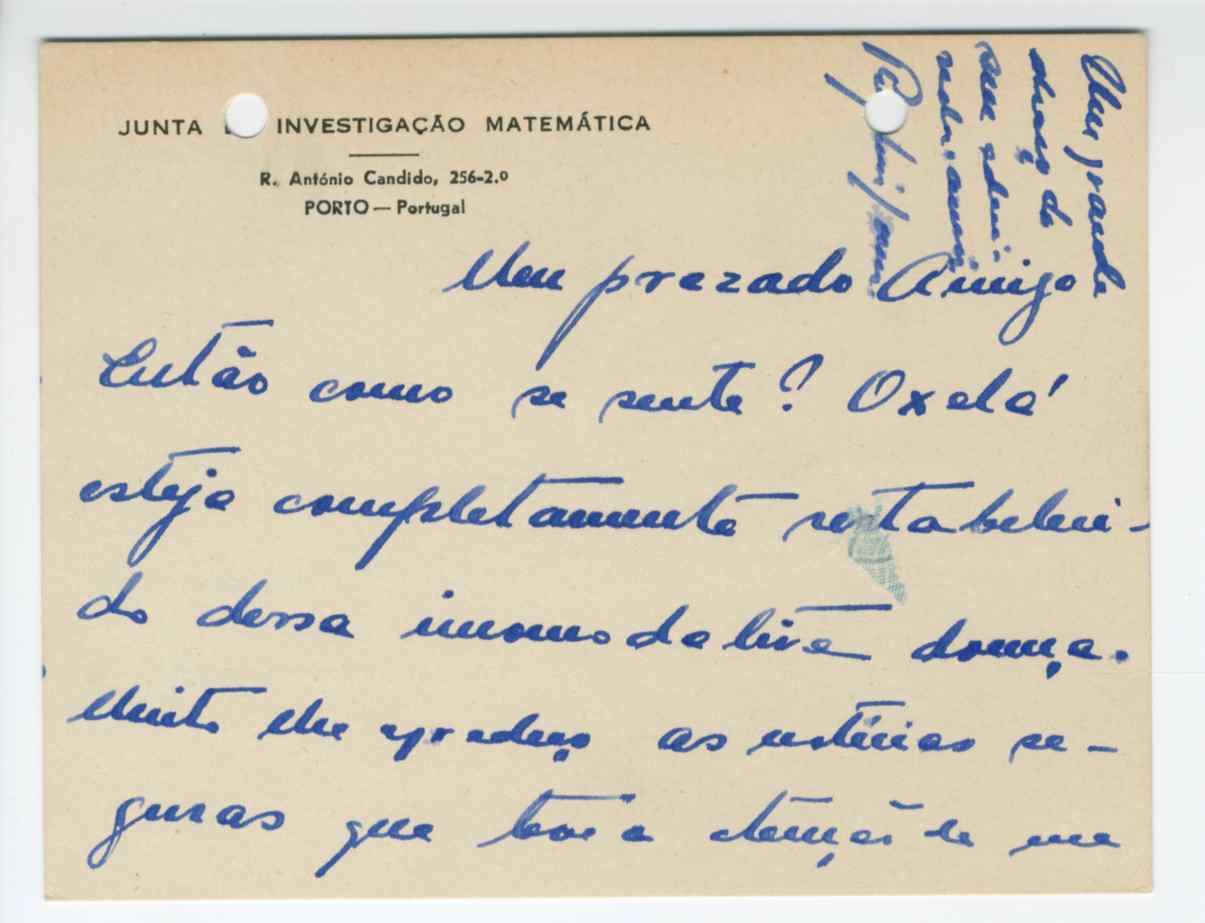 JUNTA DE INVESTIGAÇÃO MATEMÁTICA
R. António Candido, 256-2.º
PORTO — Portugal
Meu prezado Amigo
Então como se sente? Oxalá
esteja completamente restabeleci-
do dessa incomodativa doença.
Muito lhe agradeço as notícias se-
guras que teve a atenção de me
Um grande
abraço do
seu admi-